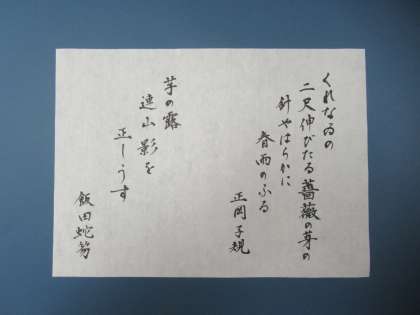 くれなゐの
二尺伸びたる薔薇の芽の
針やはらかに
春雨のふる
正岡子規
芋の露
連山影を
正しうす
飯田蛇笏